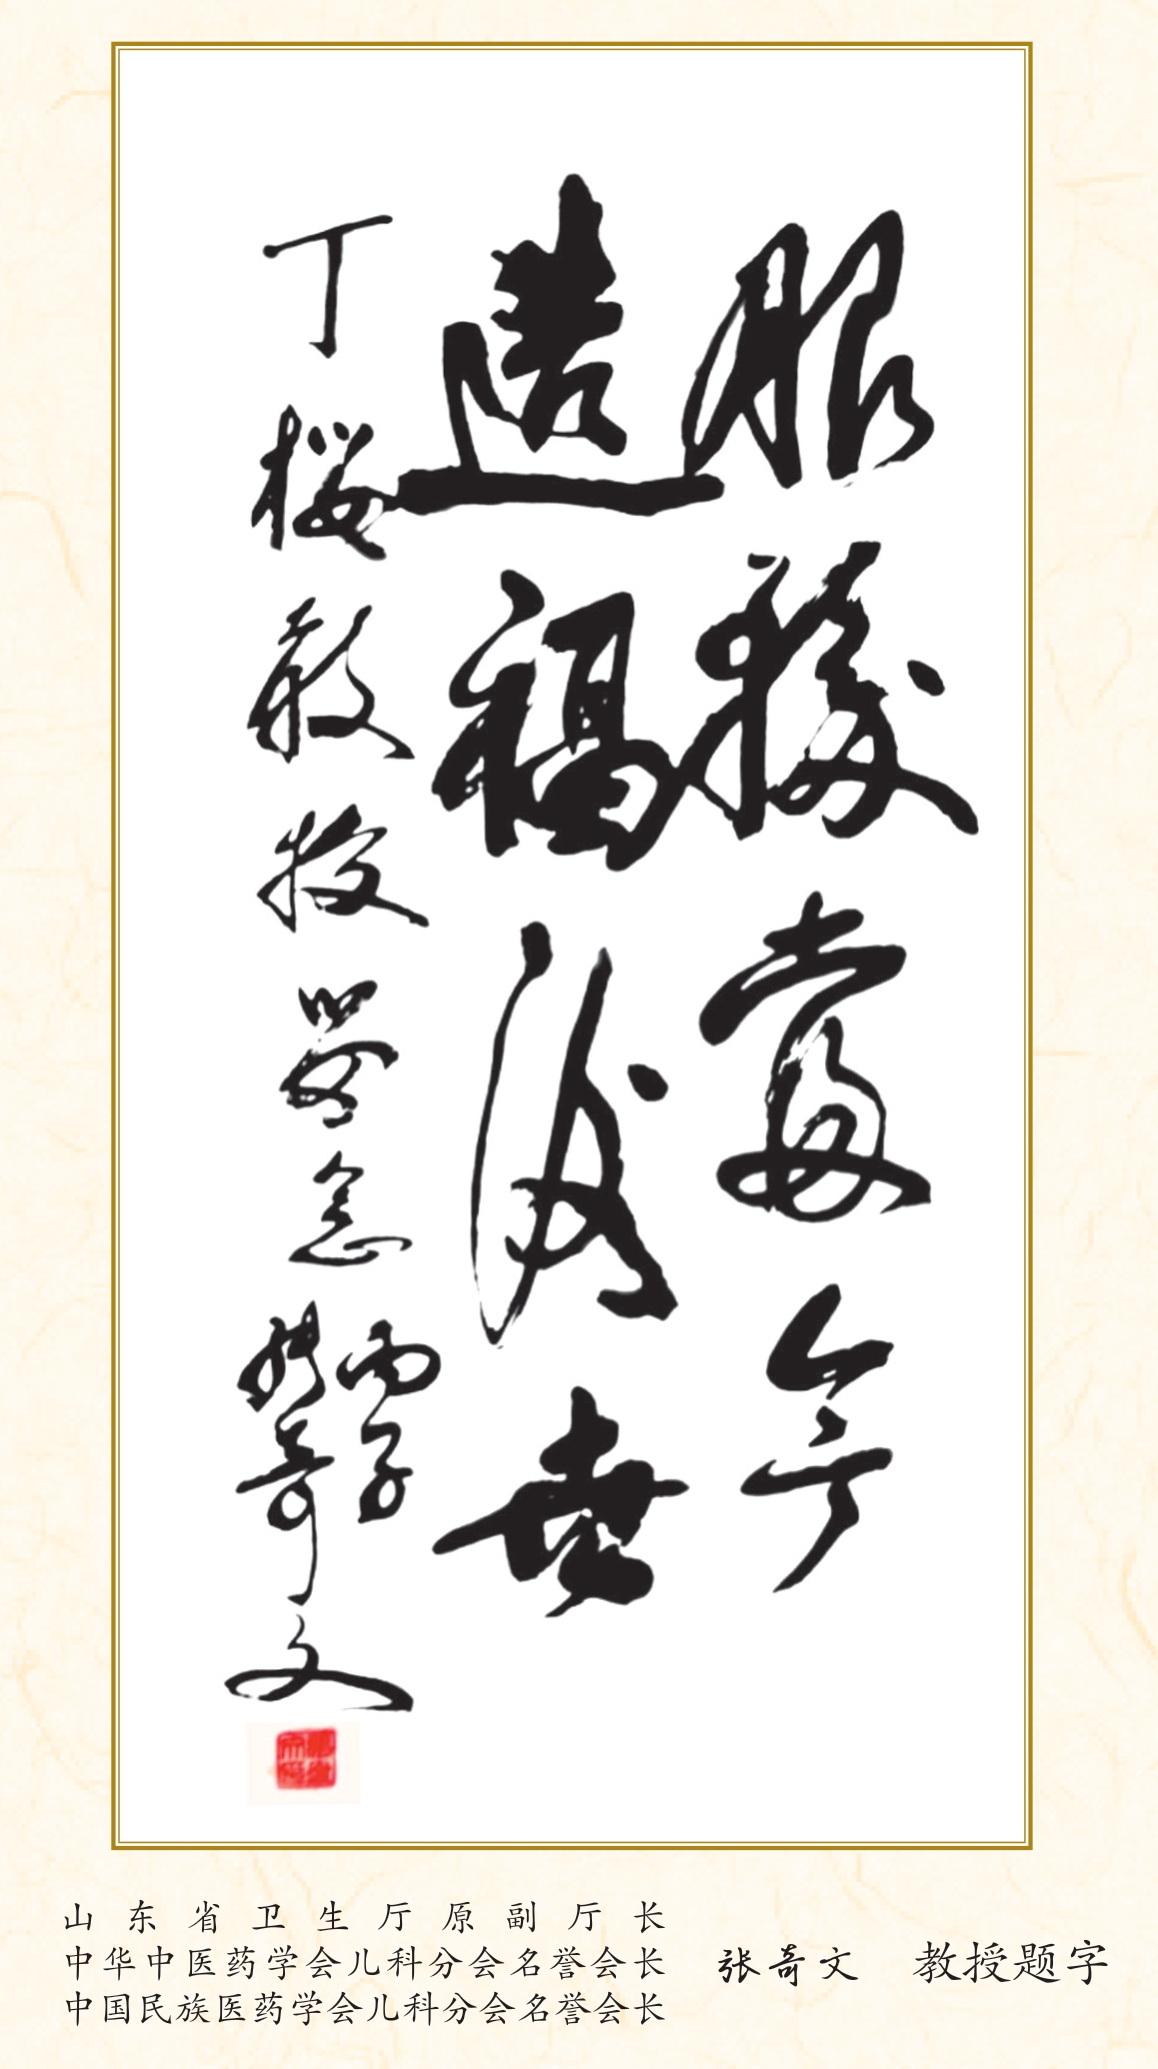 服務當今
造福後世
丁樱教授留念
丙子
張奇文
山东省卫生厅原副厅长
中华中医药学会儿科分会名誉会长
中国民族医药学会儿科分会名誉会长
张奇文 教授题字